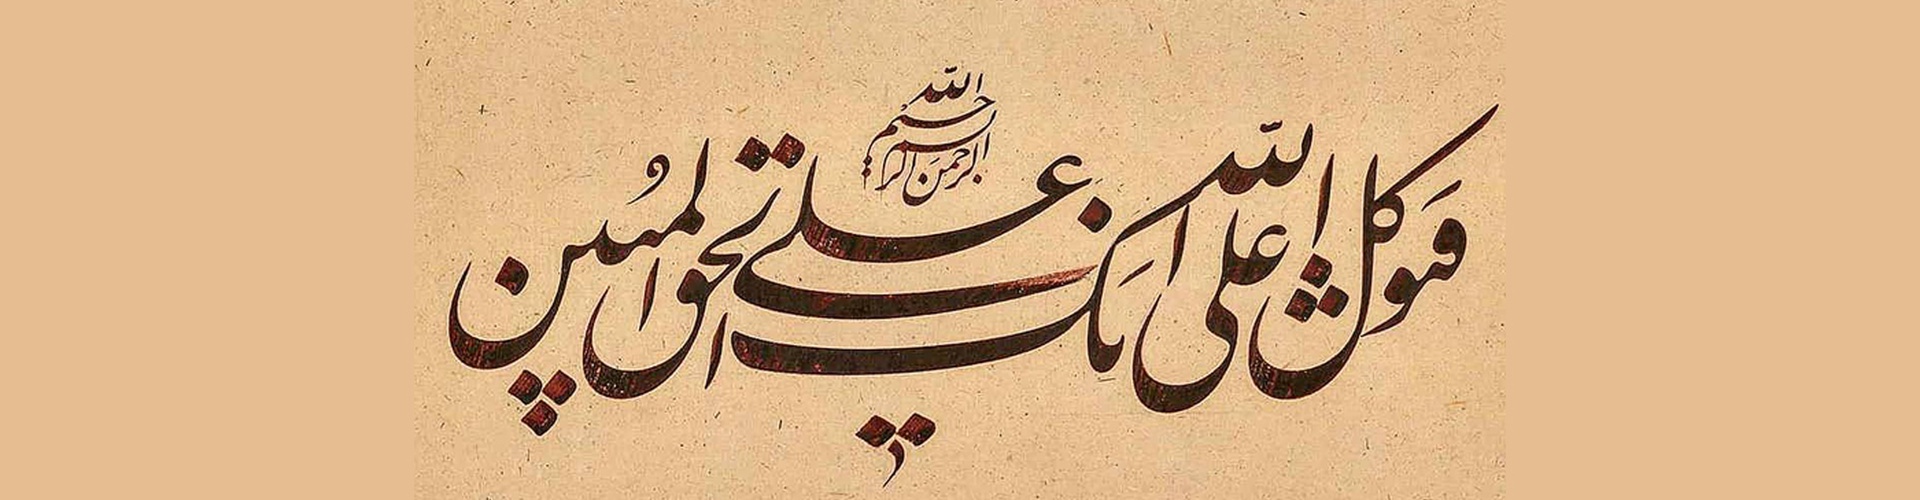 بسم الله الرحمن الرحیم
فتوکل علی الله انک علی الحق المبین